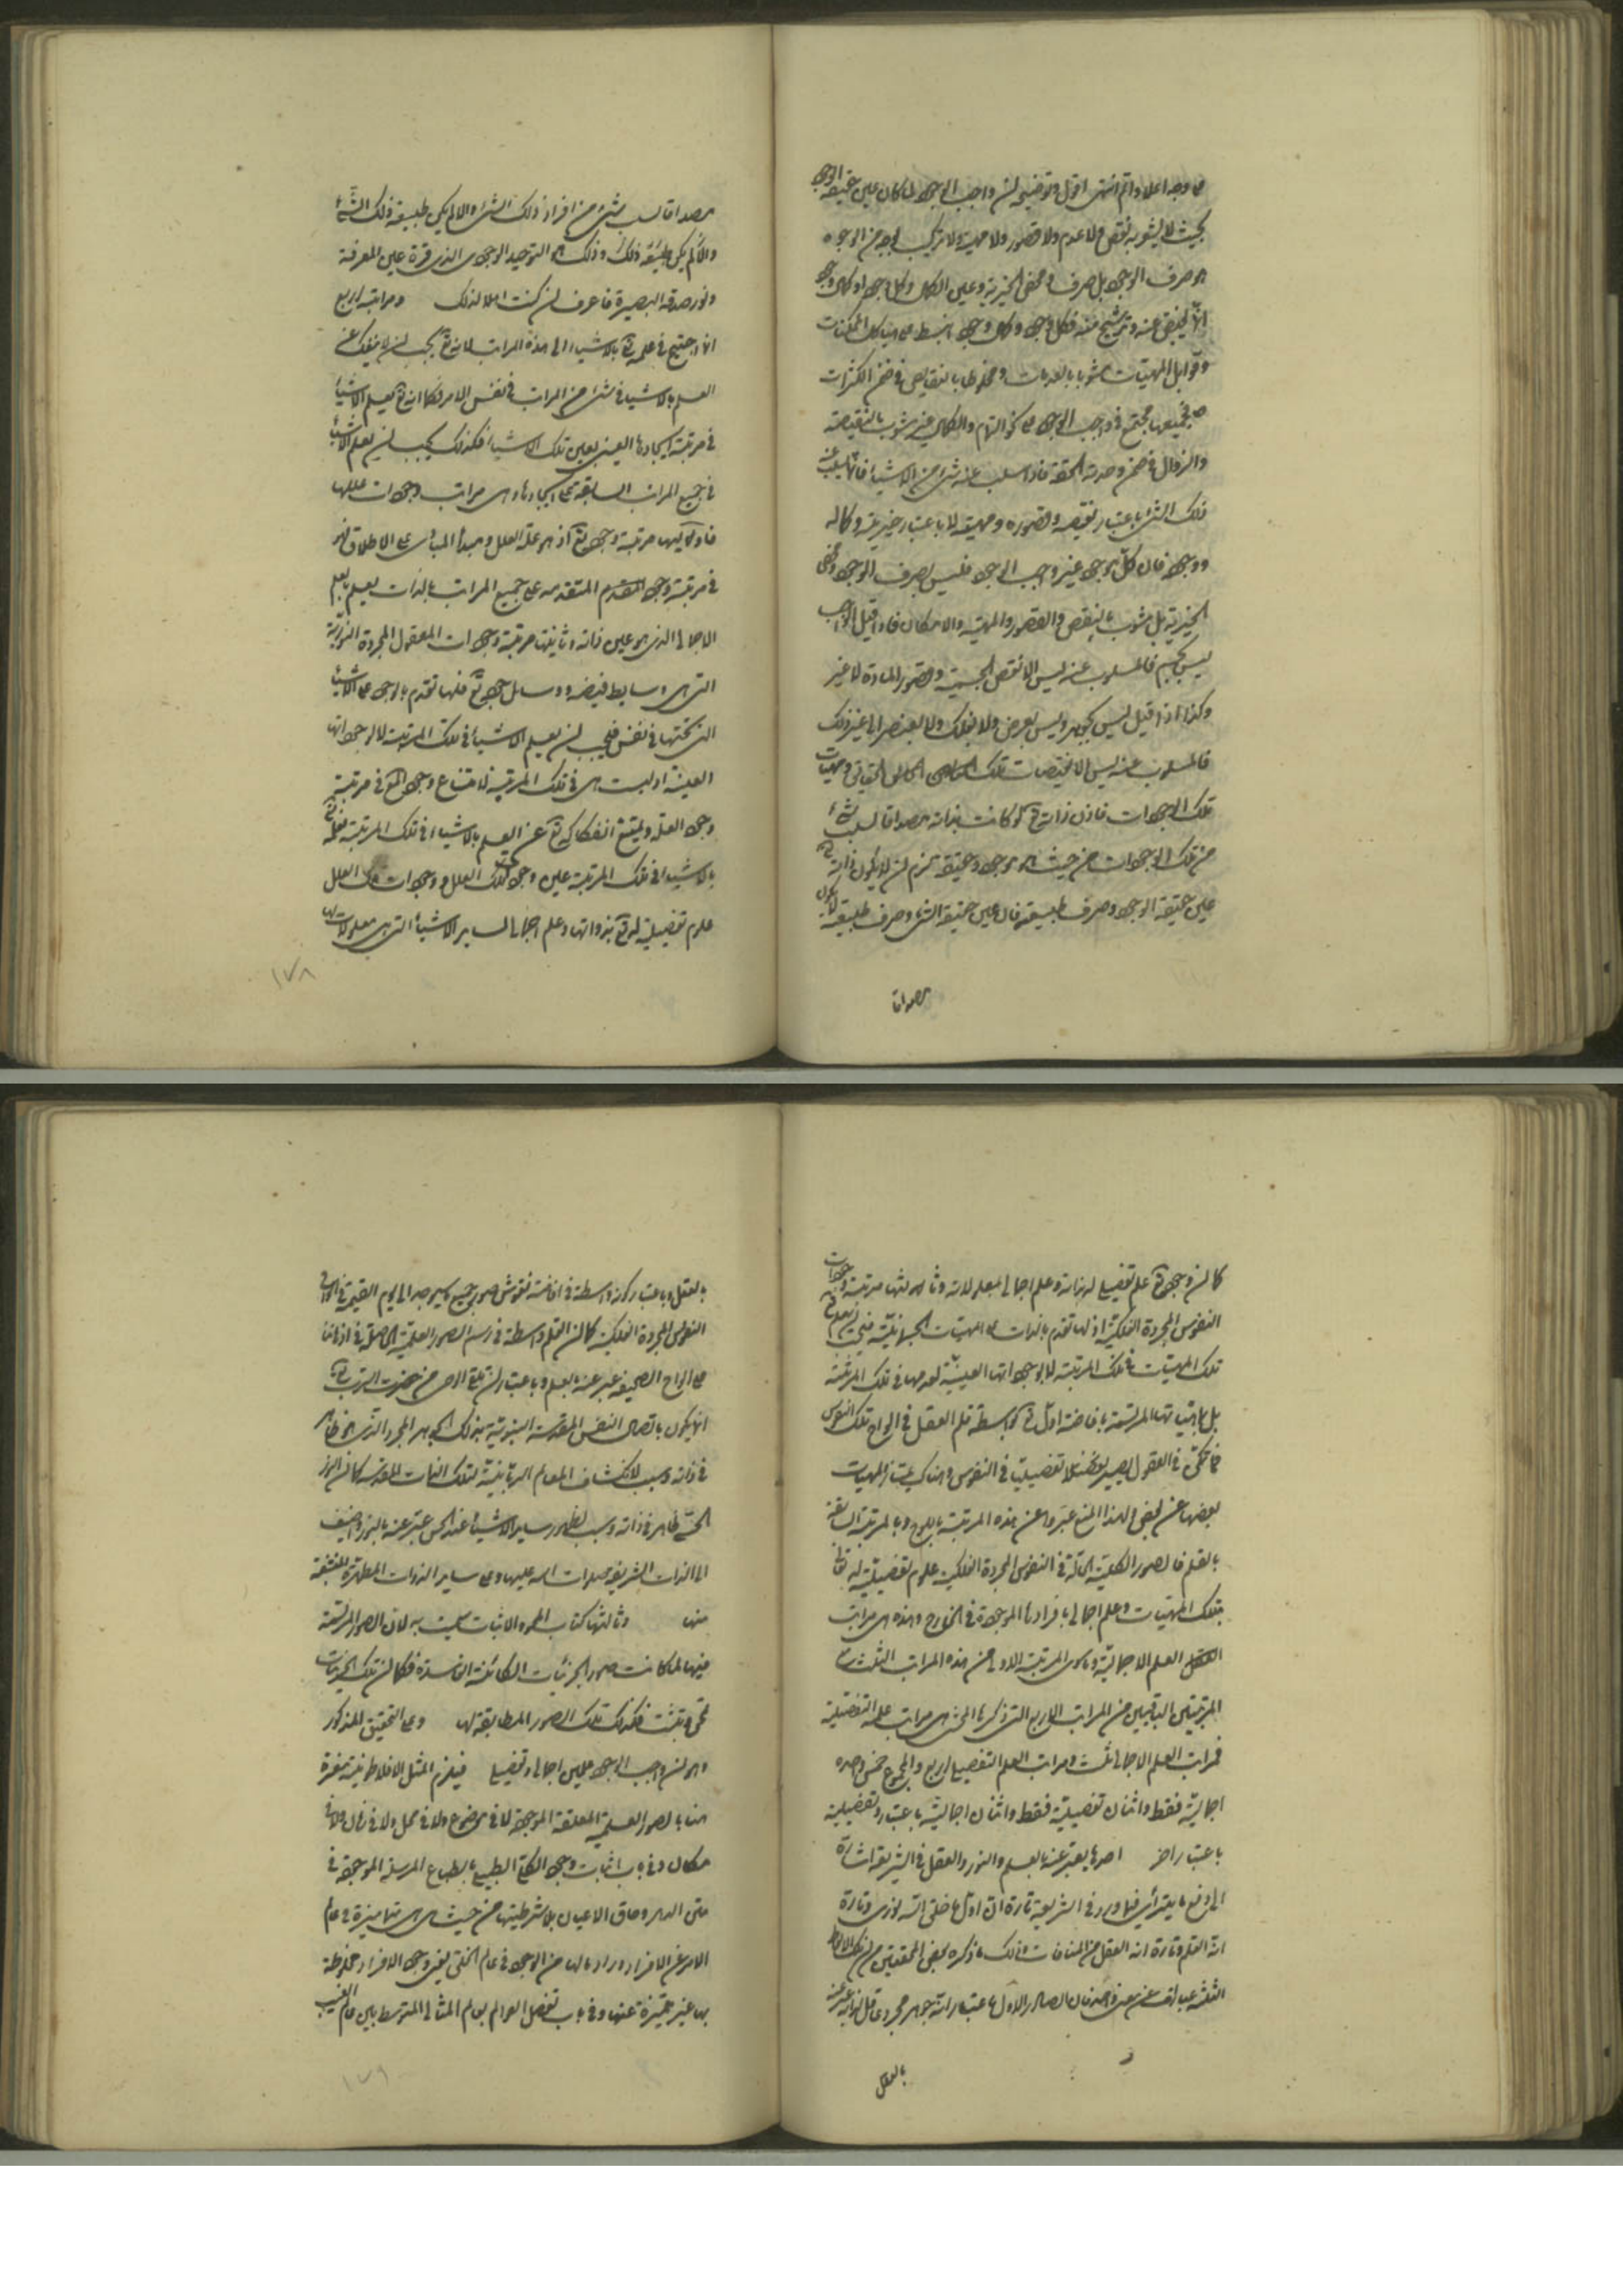 على وجه اعلا واتم انتهى اقول وتوضيحه ان واجب الوجود لما كان عين حقيقة الوجود
بحيث لا يشوبه نقص ولا عدم ولا قصور ولا مهية ولا تركيب بوجه من الوجوه
هو صرف الوجود بل صرف و محض الخيرية وعين الكمال وكل وجود او كمال وجود
انما يفيض عنه ويترشح منه فكل وجود وكمال وجود انبسط على هياكل الممكنات
وقوابل المهيات مشوبا بالعدمات ومخلوطا بالنقايص في ضمن الكثرات
فجميعها مجتمع في واجب الوجود على نحو التمام والكمال غير مشوب بالنقيصة
والزوال في ضمن وحدته الحقة فاذا سلب عنه شئ من الاشياء فانما يسلب عنه
ذلك الشئ باعتبار نقصه وقصوره ومهيته لا باعتبار خيريته وكماله
ووجوده فان كل موجود غير واجب الوجود فليس بصرف الوجود ومحض
الخيرية بل مشوب بالنقص والقصور والمهية والامكان فاذا قيل الواجب
ليس بجسم فالمسلوب عنه ليس الا نقص الجسمية وقصور المادة لا غير
وكذا اذا قيل ليس بجوهر وليس بعرض ولا بفلك ولا بعنصر الى غير ذلك
فالمسلوب عنه ليس الا نقيصات تلك الحقايق ومهيات
تلك الوجودات فاذن ذاته تع لو كانت بذاته مصداقا لسلب شئ
من تلك الوجودات من حيث هو موجود وحقيقة لزم ان لا يكون ذاته تع
عين حقيقة الوجود وصرف طبيعته فان عين حقيقة الشئ وصرف طبيعته لا يكون
مصداقا
مصداقا لسلب شئ من افراد ذلك الشئ والا لم يكن طبيعة ذلك الشئ
والا لم يكن طبيعته ذلك وذلك هو التوحيد الوجودى الذى قرة عين المعرفة
ونور حدقة البصيرة فاعرف ان كنت اهلا لذلك ومراتبه اربع
انما احتيج في علمه تع بالاشياء الى هذه المراتب لانه تع يجب ان لا ينفك عن
العلم بالاشياء في شئ من المراتب في نفس الامر فكما انه تع يعلم الاشياء
في مرتبة ايجادها العيني بعين تلك الاشياء فكذلك يجب ان يعلم الاشياء
في جميع المراتب السابقة على ايجادها وهى مراتب وجودات عللها
فاولاها مرتبة وجوده تع اذ هو علة العلل ومبدأ المبادى على الاطلاق فهو
في مرتبة وجوده المقدم المتقدم على جميع المراتب بالذات يعلم بعلم
الاجمالى الذى هو عين ذاته وثانيتها مرتبة وجودات العقول المجردة النورية
التى هى وسايط فيضه ورسل جوده تع فلها تقدم بالوجود على الاشياء
التى تحتها في نفس فيجب ان يعلم الاشياء في تلك المرتبة لا بوجوداتها
العينية اذ ليست هى في تلك المرتبة لامتناع وجود المع في مرتبة
وجود العلة ويمتنع انفكاكه تع عن العلم بالاشياء في تلك المرتبة فعلمه تع
بالاشياء في تلك المرتبة عين وجود تلك العلل ووجودات تلك العلل
علوم تفصيلية له تع بذواتها وعلم اجمالى لساير الاشياء التى هى معلولات لها
١٧٨
كما ان وجوده تع علم تفصيلى لذاته وعلم اجمالى لمعلولاته وثالثتها مرتبة وجودات
النفوس المجردة الفلكية اذ لها تقدم بالذات على المهيات الجسمانية فيجب ان يعلم تع
تلك المهيات في تلك المرتبة لا بوجوداتها العينية لعدمها في تلك المرتبة
بل بمهياتها المرتسمة بافاضة اوله تع بواسطة قلم العقل في الواح تلك النفوس
فما تحقق في العقول يصير تفصيليا في النفوس وهناك يمتاز المهيات
بعضها عن بعض ولهذا المنع عبروا عن هذه المرتبة باللوح وبالمرتبة السابقة
بالقلم فالصور الكلية الحالة في النفوس المجردة الفلكية علوم تفصيلية له تعالى
بتلك المهيات وعلم اجمالى بافرادها الموجودة في الخارج وهذه هى مراتب
العلم الاجمالية وما سوى المرتبة الاولى من هذه المراتب الثلث مع
المرتبتين الباقيتين من المراتب الاربع التى ذكرها المحشى هى مراتب علمه التفصيلية
فمراتب العلم الاجمالى ثلث ومراتب العلم التفصيلى اربع والمجموع خمس واحدة
اجمالية فقط واثنان تفصيلية فقط واثنان اجمالية باعتبار وتفصيلية
باعتبار اخر احدها يعبر عنه بالعلم والنور والعقل في الشريعة اشارة
الى دفع ما يترأى فيما ورد في الشريعة تارة ان اول ما خلق الله نورى وتارة
انه القلم وتارة انه العقل من المنافات وذلك ما ذكره بعض المحققين من ان تلك الالفاظ
الثلثة عبارات عن معنى واحد فان الصادر الاول باعتبار انه جوهر مجرد عاقل لذاته عبر عنه
بالعقل
بالعقل وباعتبار كونه واسطة في افاضة نقوش صور جميع ما سيوجد الى يوم القيمة في الواح
النفوس المجردة الفلكية كما ان القلم واسطة في رسم الصور العلمية الحاصلة في اذهاننا
على الواح الصحيفة عبر عنه بالعلم وباعتبار ان تلقى الوحى من حضرت الرب تعالى
انما يكون باتصال النفس المقدسة النبوية بذلك الجوهر المجرد الذى هو ظاهر
في ذاته وسبب لانكشاف المعالم الربانية لتلك الذات المقدسة كما ان النور
الحسى ظاهر في ذاته وسبب لظهور ساير الاشياء عند الحس عبر عنه بالنور واضيف
الى الذات الشريفة صلوات الله عليها وعلى ساير الذوات المطهرة المنشعبة
منها وثالثها كتاب المحو والاثبات سميت به لان الصور المرتسمة
فيها لما كانت صور الجزئيات الكائنة الفاسدة فكما ان تلك الجزئيات
تمحى وتثبت فكذلك تلك الصور المطابقة لها وعلى التحقيق المذكور
وهو ان واجب الوجود علمين اجمالى وتفصيلى فيلزم المثل الافلاطونية مفسرة
هنا بالصور العلمية المعلقة الموجودة لا في موضوع ولا في محل ولا في زمان ولا في
مكان وفى باب اثبات وجود الكلى الطبيعى بالطبايع المرسلة الموجودة في
متن الدهر وحاق الاعيان بلا شرطيتها من حيث هى هى متمايزة في عالم
الامر عن الافراد وراء ما لها من الوجود في عالم الخلق بعين وجود الافراد مخلوطة
بها غير متميزة عنها وفى باب تفصيل العوالم بعالم المثالى المتوسط بين عالم الغيب
١٧٩